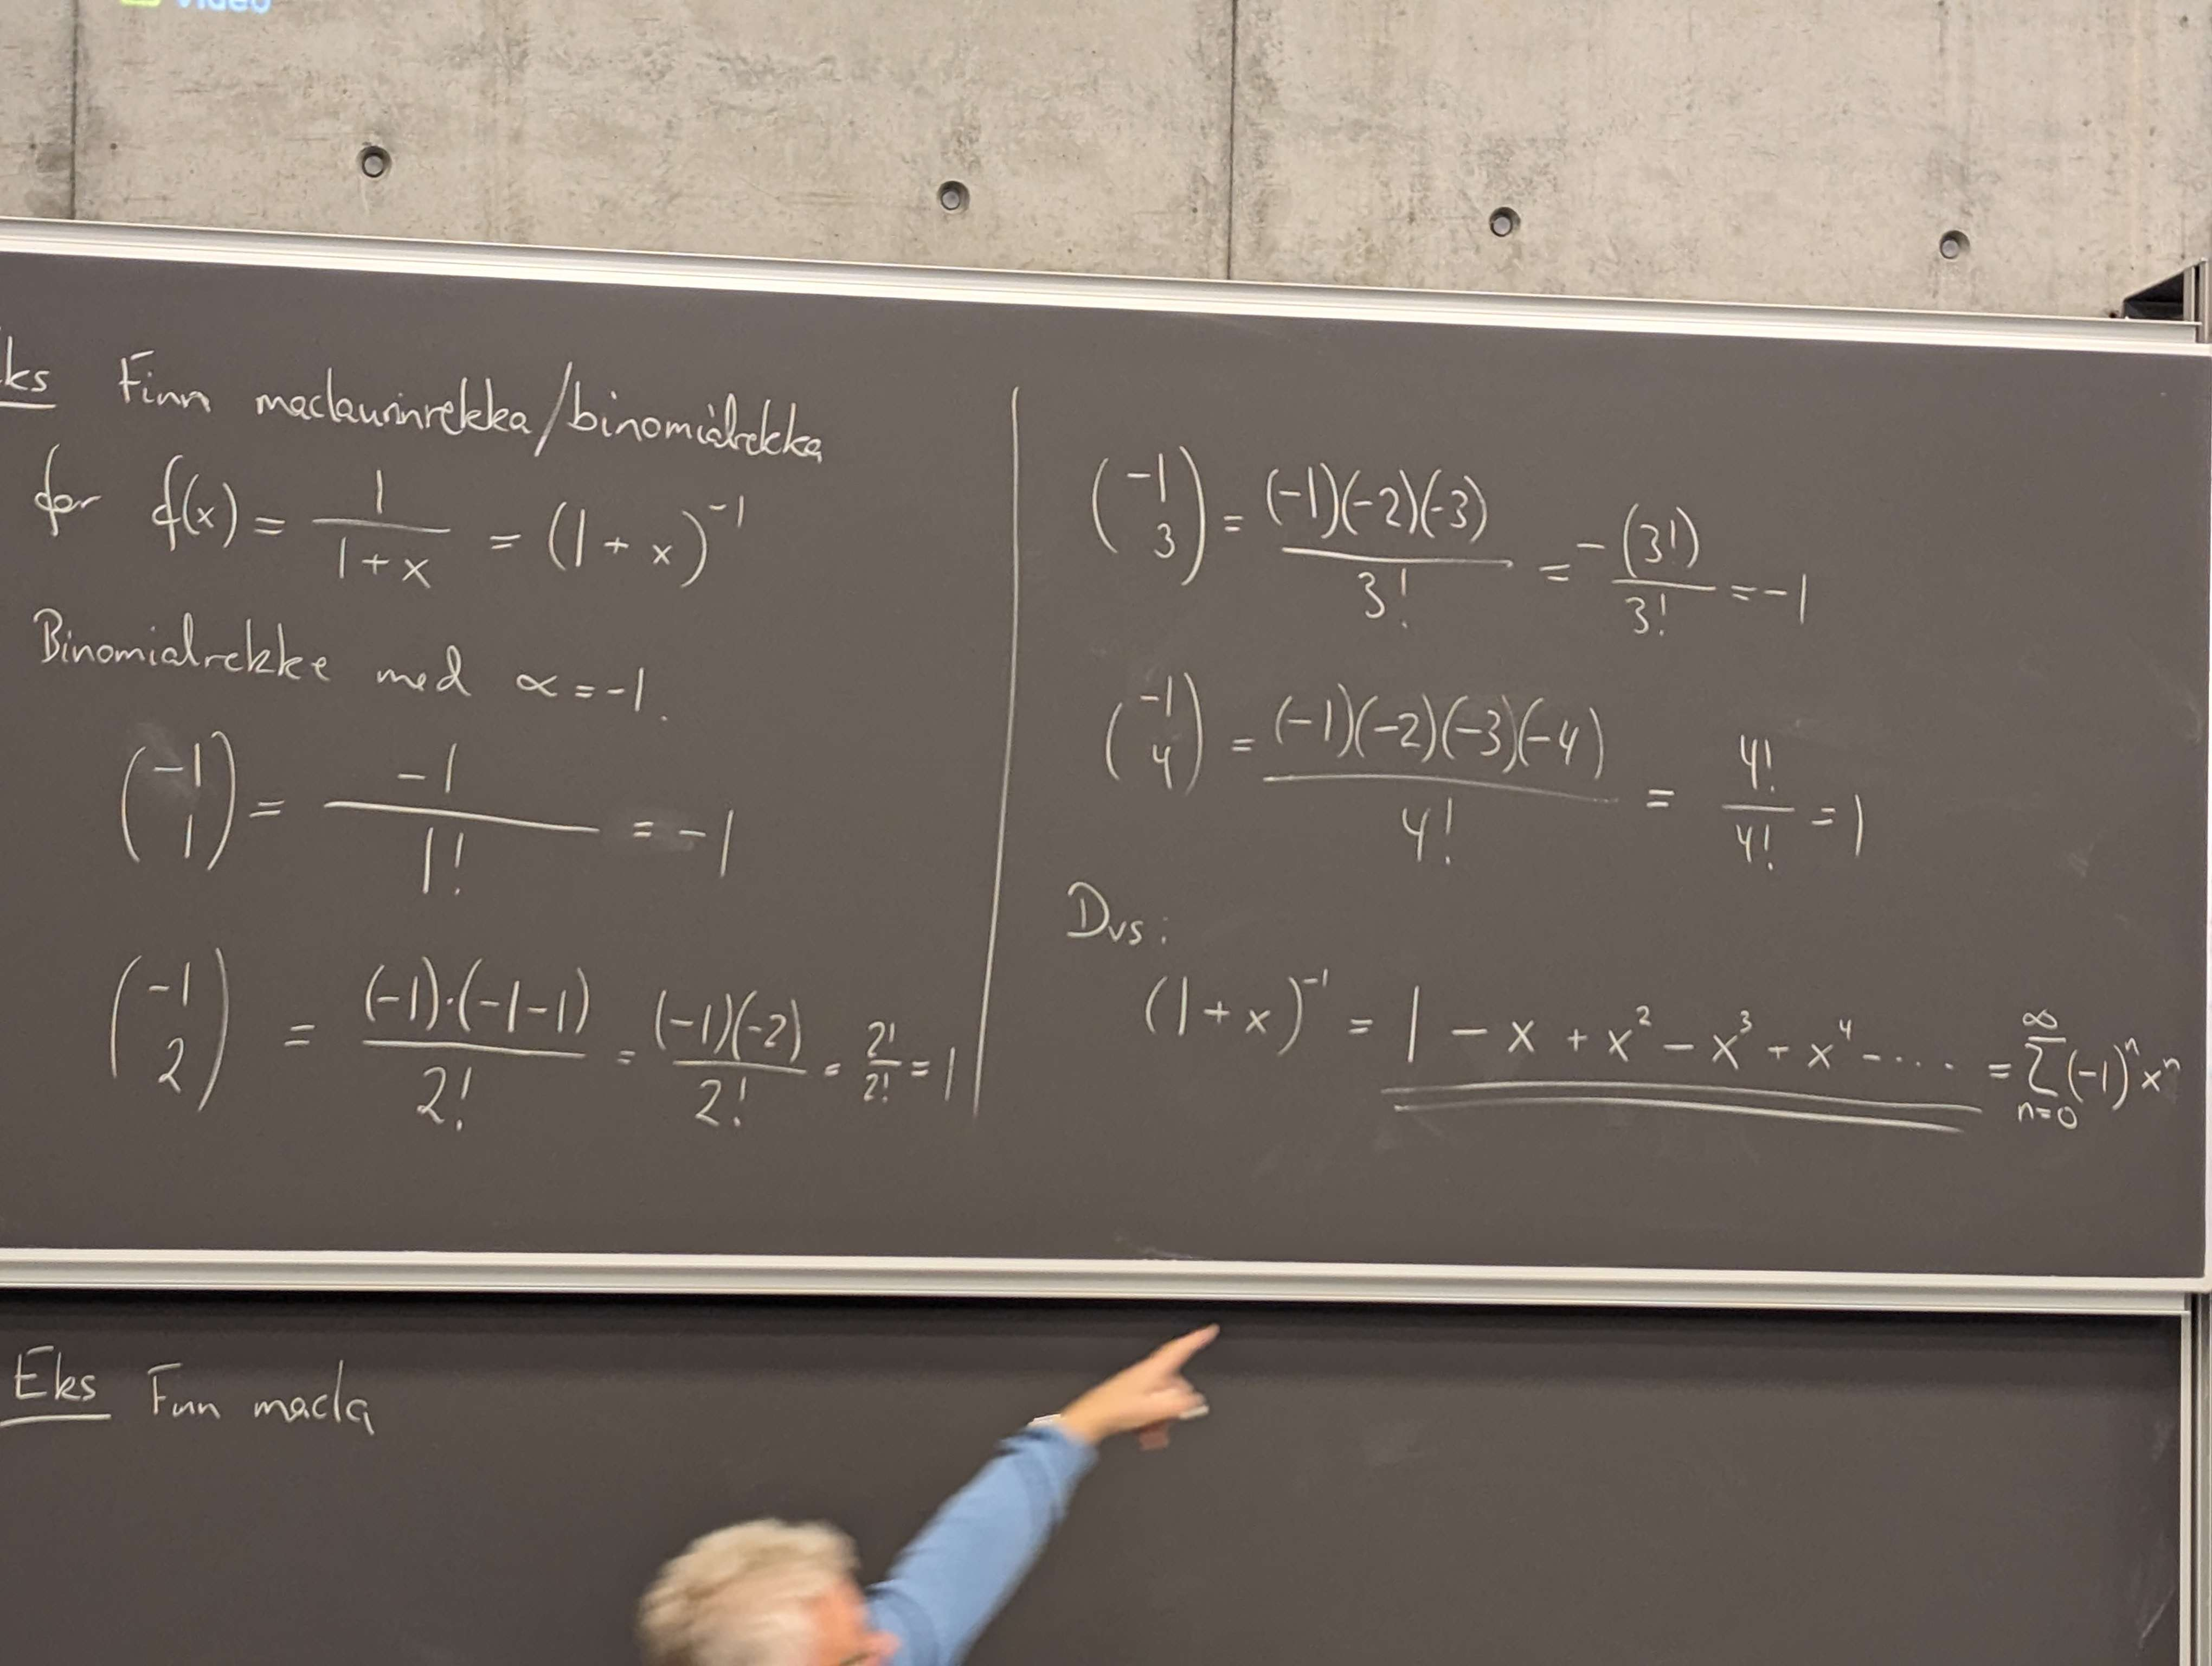 video
ks Finn maclaurinrekka/binomialrekka
for f(x) = 1/(1+x) = (1+x)^-1
Binomialrekke med α = -1.
(-1 1) = -1/1! = -1
(-1 2) = (-1)·(-1-1)/2! = (-1)(-2)/2! = 2!/2! = 1
(-1 3) = (-1)(-2)(-3)/3! = -(3!)/3! = -1
(-1 4) = (-1)(-2)(-3)(-4)/4! = 4!/4! = 1
Dvs:
(1+x)^-1 = 1 - x + x^2 - x^3 + x^4 - .... = ∑_{n=0}^{∞} (-1)^n x^n
Eks Finn macla